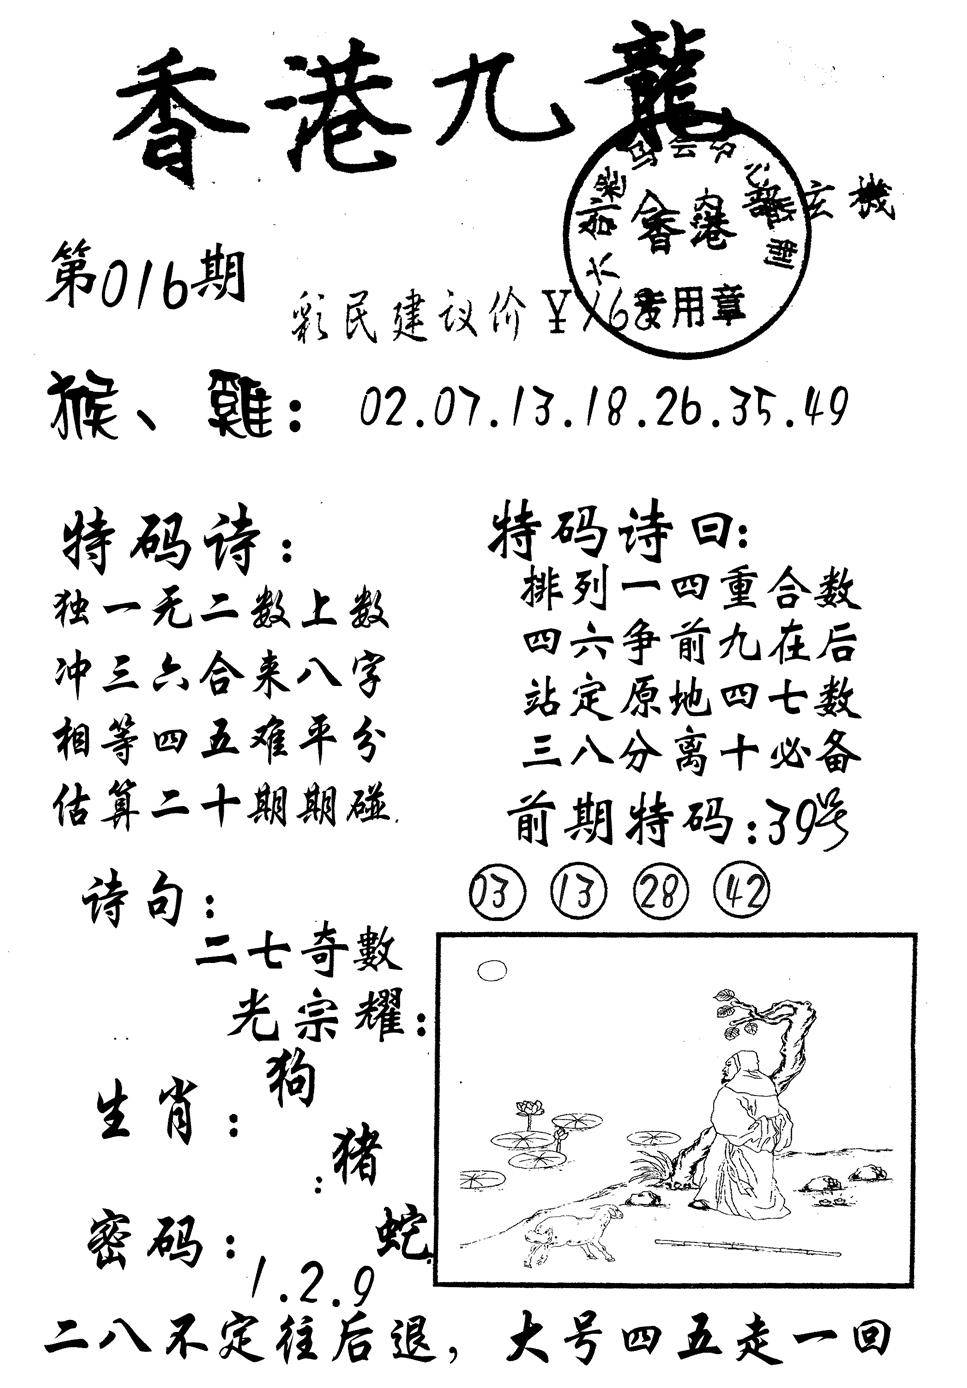 香港九龍
內部玄機
香港
专用章
第016期
彩民建议价¥168
猴、雞：02.07.13.18.26.35.49
特码诗：
独一无二数上数
冲三六合来八字
相等四五难平分
估算二十期期碰.
特码诗曰：
排列一四重合数
四六争前九在后
站定原地四七数
三八分离十必备
前期特码：39号
03 13 28 42
诗句：
二七奇數
光宗耀：
生肖：
狗
猪
蛇
密码：
1.2.9
二八不定往后退，大号四五走一回